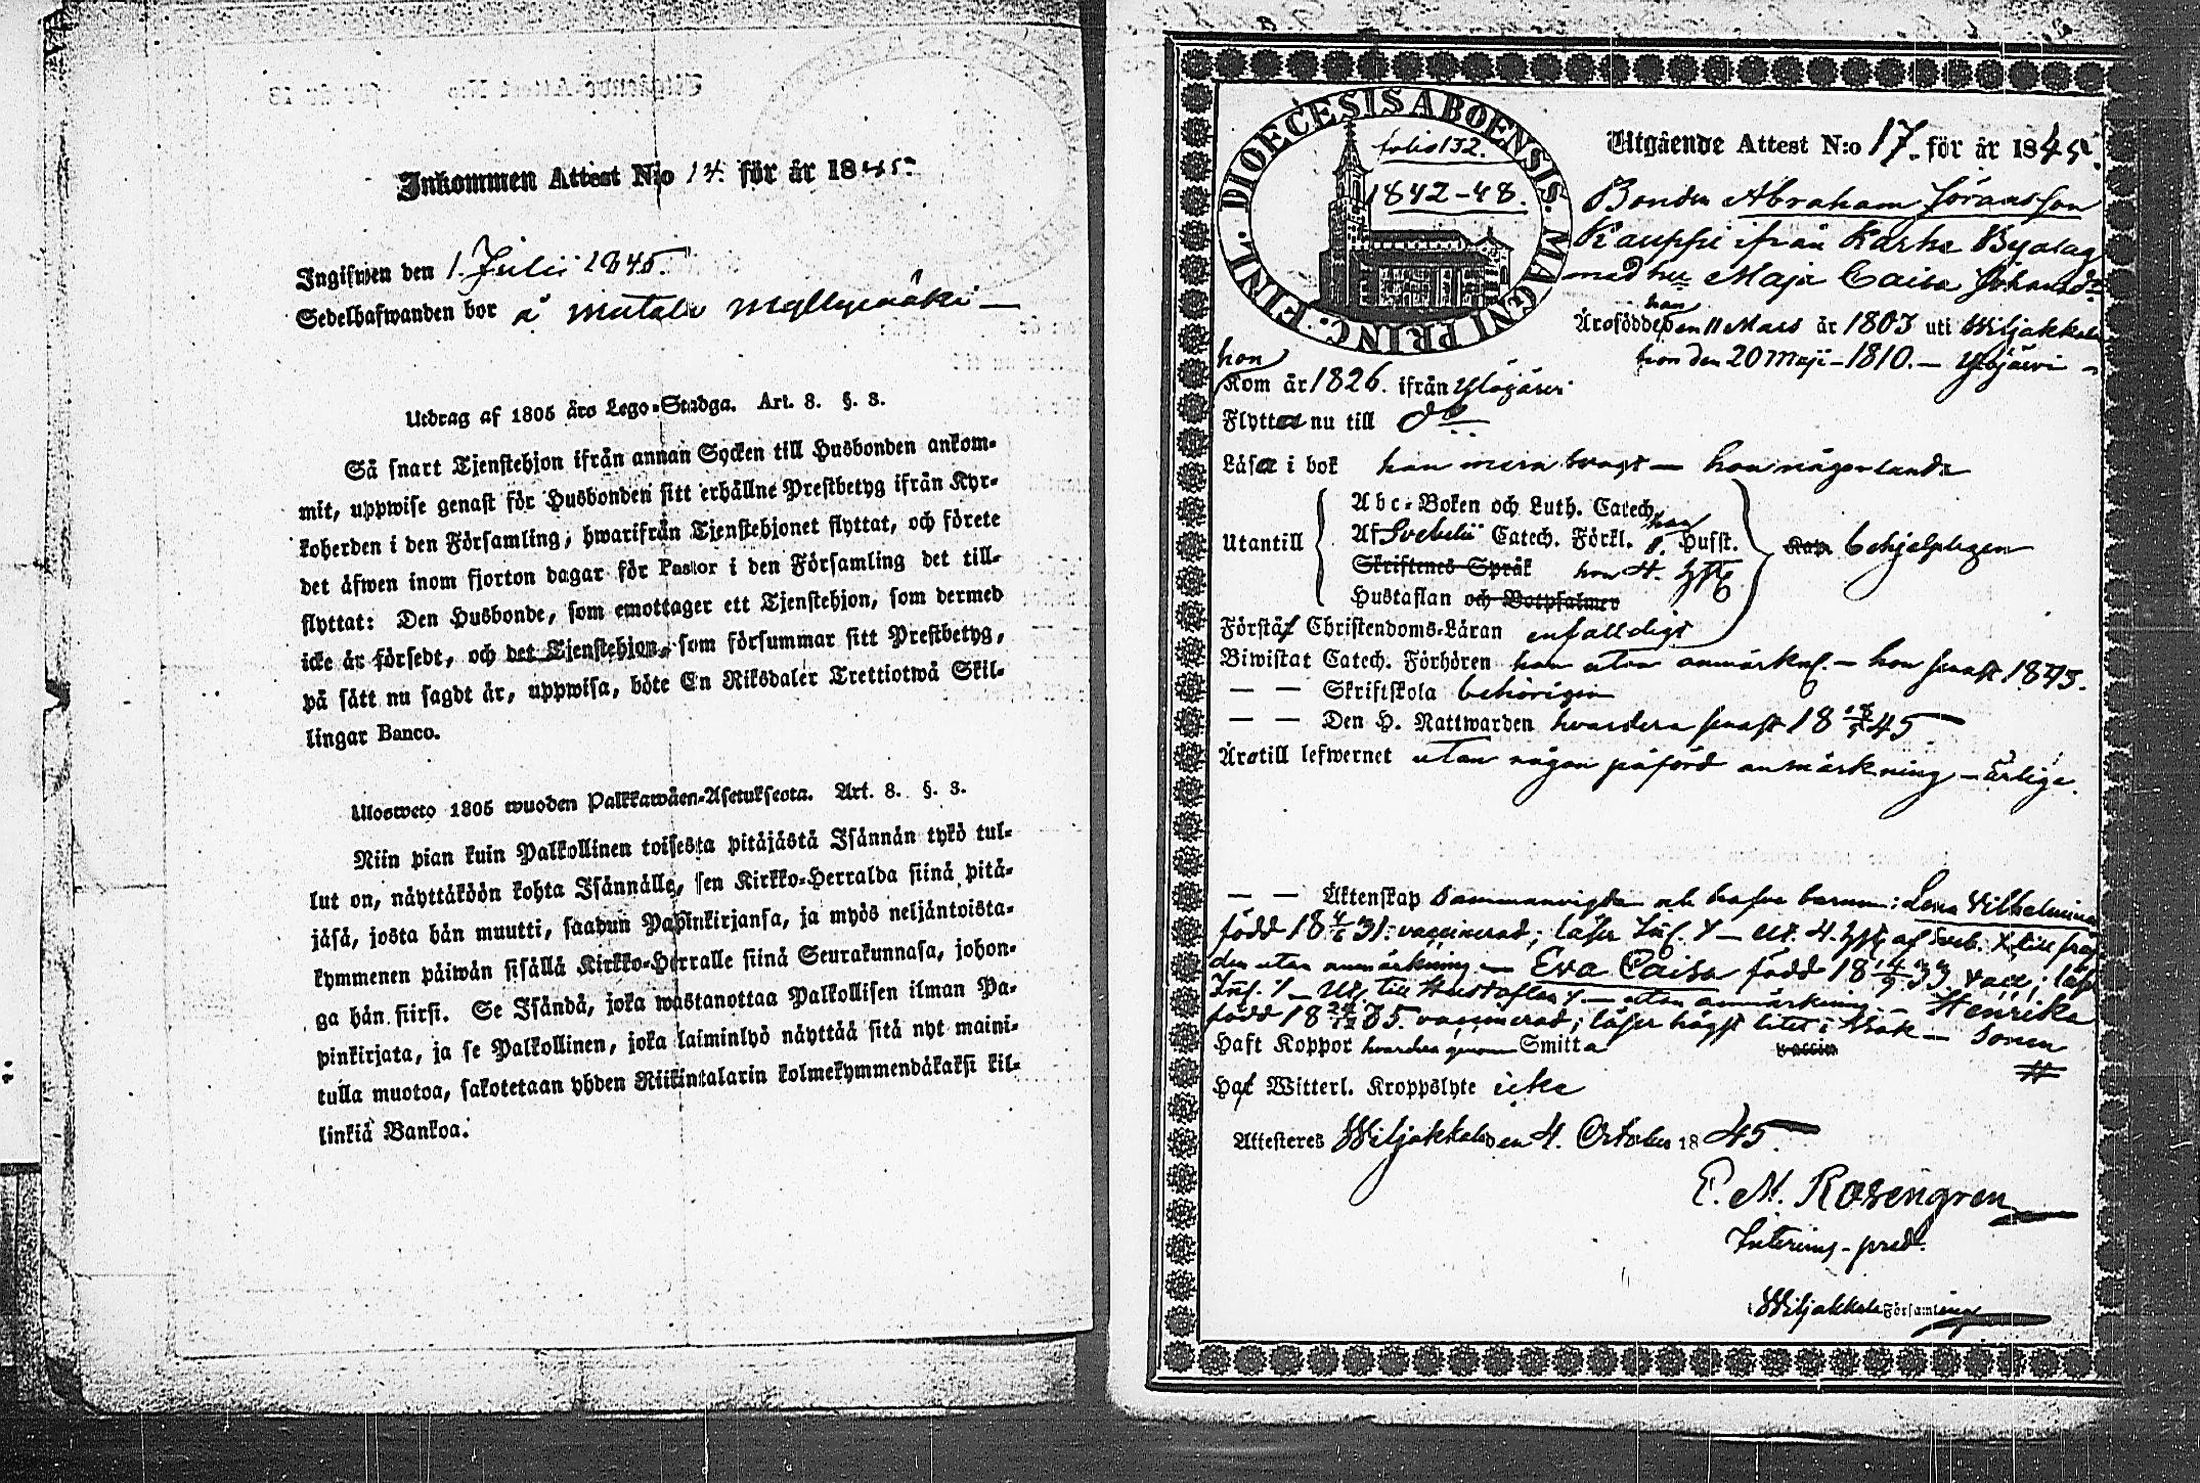 Inkommen Attest N:o 14. för år 1845.
Ingifwen den 1. Julii 1845.
Sedelhafwanden bor å
Utdrag af 1805 års Lego-Stadga. Art. 8. §. 3.
Så snart Tjenstehjon ifrån annan Socken till Husbonden ankom-
mit, uppwise genast för Husbonden sitt erhållne Prestbetyg ifrån Kyr-
koherden i den Församling, hwarifrån Tjenstehjonet flyttat, och förete
det äfwen inom fjorton dagar för Pastor i den Församling det till-
flyttat: Den Husbonde, som emottager ett Tjenstehjon, som dermed
icke är försedt, och det Tjenstehjon, som försummar sitt Prestbetyg,
på sätt nu sagdt är, uppwisa, böte En Riksdaler Trettiotwå Skil-
lingar Banco.
Ulosweto 1805 wuoden Palkkawäen-Asetuksesta. Art. 8. §. 3.
Niin pian kuin Palkollinen toisesta pitäjästä Isännän tykö tul-
lut on, näyttäköön kohta Isännälle, sen Kirkko-Herralda siinä pitä-
jäsä, josta hän muutti, saadun Papinkirjansa, ja myös neljäntoista-
kymmenen päiwän sisällä Kirkko-Herralle siinä Seurakunnasa, johon-
ga hän siirsi. Se Isändä, joka wastanottaa Palkollisen ilman Pa-
pinkirjata, ja se Palkollinen, joka laiminlyö näyttää sitä nyt maini-
tulla muotoa, sakotetaan yhden Riikintalarin kolmekymmendäkaksi kil-
linkiä Bankoa.
DIOECESIS ABOENSIS. MAGNI PRINC. FINL.
folio 132.
1842-48.
Utgående Attest N:o 17. för år 1845.
Bonden Abraham Jöransson
Kauppi ifrån Karhe Byalag
med hu Maja Caisa Johansdr
han
Äro födde den 11 Mars år 1803 uti Wiljakkala
hon den 20 Maji - 1810. - Ylöjärvi
hon
Kom år 1826. ifrån Ylöjärvi
Flytta nu till do
Läsa i bok han mera svagt - hon någorlunda
Abc-Boken och Luth. Catech.
han
Utantill Af Svebelii Catech. Förkl. Husst.
Skriftenes Språk hon 4.
Hustaflan och Botpsalmer
behjelpligen
Förstå Christendoms-Läran enfaldigt
Biwistat Catech. Förhören han utan anmärkn. - hon senast 1843.
— — Skriftskola behörigen
— — Den H. Nattwarden hvardera senast 18 45
Äro till lefwernet utan någon påförd anmärkning - ärlige.
— — Äktenskap sammanvigda och hafva barnen: Lena Vilhelmina
född 18 31. vaccinerad; läser
utan anmärkning - Eva Caisa född 18 33 vacc; läser
till Hustaflan - utan anmärkning - Henrika
född 18 35. vaccinerad; läser högst litet i bok - Sonen
Haft Koppor hvardera genom Smitta
Haf Witterl. Kroppslyte icke
Attesteres Wiljakkala den 4. October 1845.
E. M. Rosengren
Interims-pred.
i Wiljakkala Församling